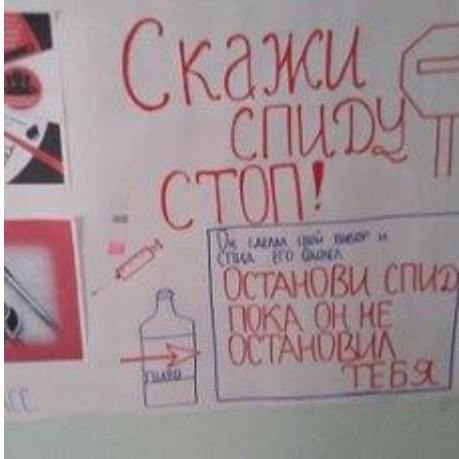 Скажи
СПИДУ
СТОП!
Он сделал свой выбор и
СПИД его
ОСТАНОВИ СПИД
ПОКА ОН НЕ
ОСТАНОВИЛ
ТЕБЯ
ПИВО